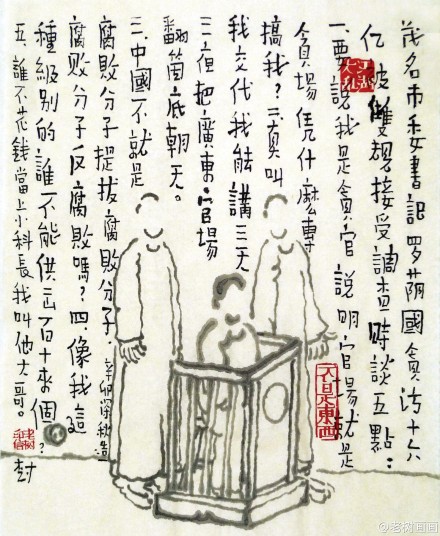 茂名市委書記罗荫國貪污十六
亿被雙規接受調查時談五點：
一.要說我是貪官說明官場就是
貪場凭什麼專
搞我？二.真叫
我交代我能講三天
三夜把廣東官場
翻箇底朝天。
三.中國不就是
腐敗分子提拔腐敗分子.
腐敗分子反腐敗嗎？四.像我這
種級別的誰不能供出百十來個？
五.誰不花錢當上小科長我叫他大哥。
辛卯深秋造
樹
不是東西
@老树画画